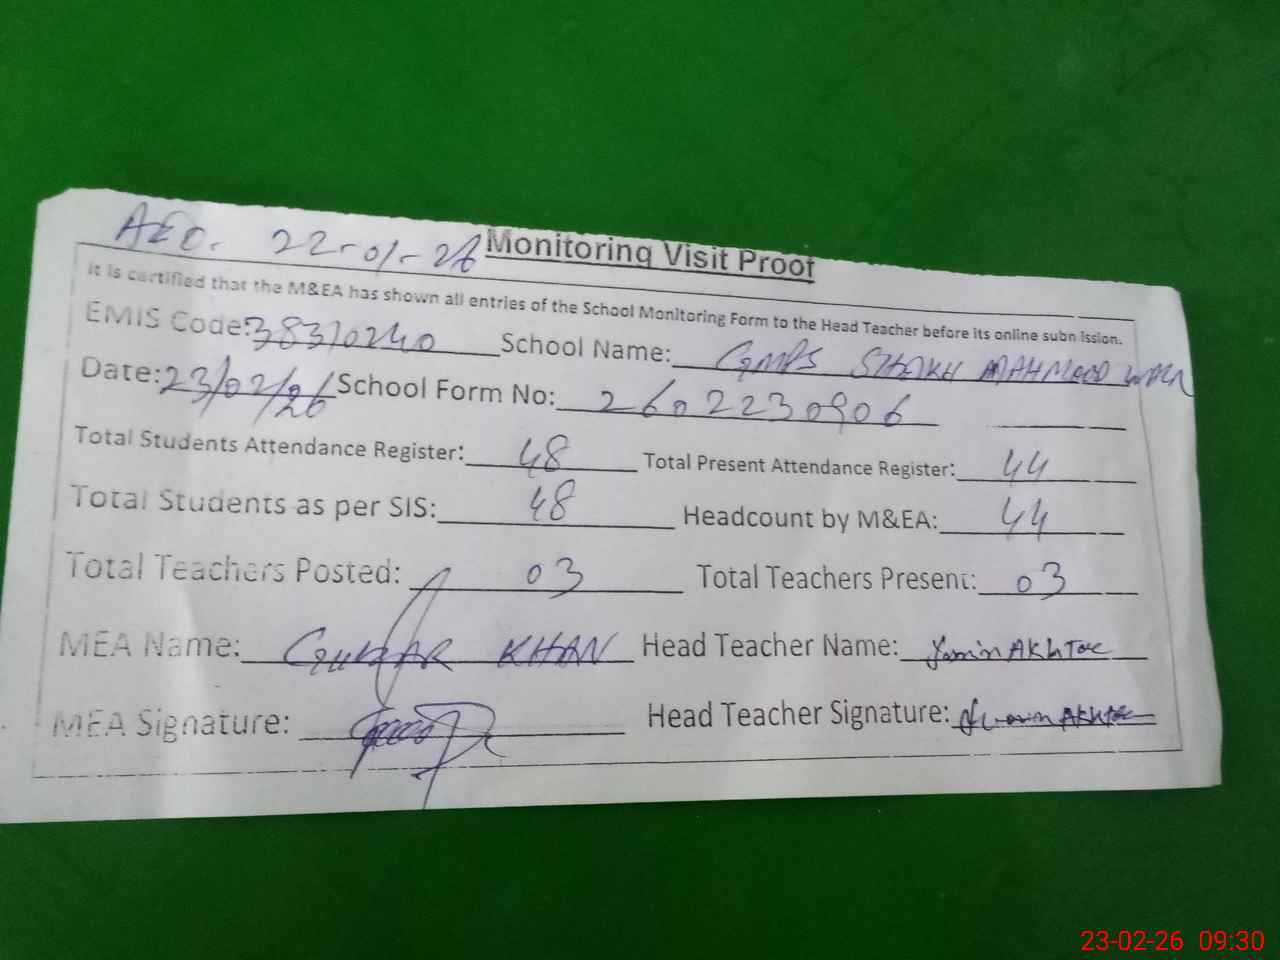 AEO. 22-01-26 Monitoring Visit Proof
It is certified that the M&EA has shown all entries of the School Monitoring Form to the Head Teacher before its online subn ission.
EMIS Code: 38310240 School Name: GMPS SHEIKH MAHMOOD
Date: 23/02/26 School Form No: 2602230906
Total Students Attendance Register: 48 Total Present Attendance Register: 44
Total Students as per SIS: 48 Headcount by M&EA: 44
Total Teachers Posted: 03 Total Teachers Present: 03
MEA Name: KHAN Head Teacher Name: Yasmin AKhTar
MEA Signature: Head Teacher Signature: AKhtar
23-02-26 09:30